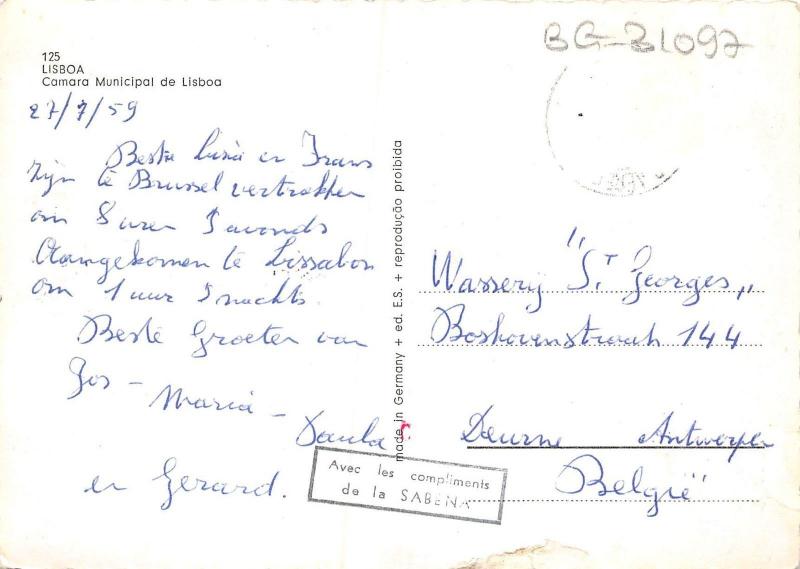 125
LISBOA
Camara Municipal de Lisboa
27/7/59
Beste en Frans
zijn te Brussel vertrokken
om 8 uren S avonds
Aangekomen te Lissabon
om 1 uur S nachts.
Beste Groeten van
Jos - Maria -
Paula
en Gerard.
made in Germany + ed. E.S. + reprodução proibida
BG-31097
Wasserij "St Georges"
Boshovenstraat 144
Deurne Antwerpen
België
Avec les compliments
de la SABENA